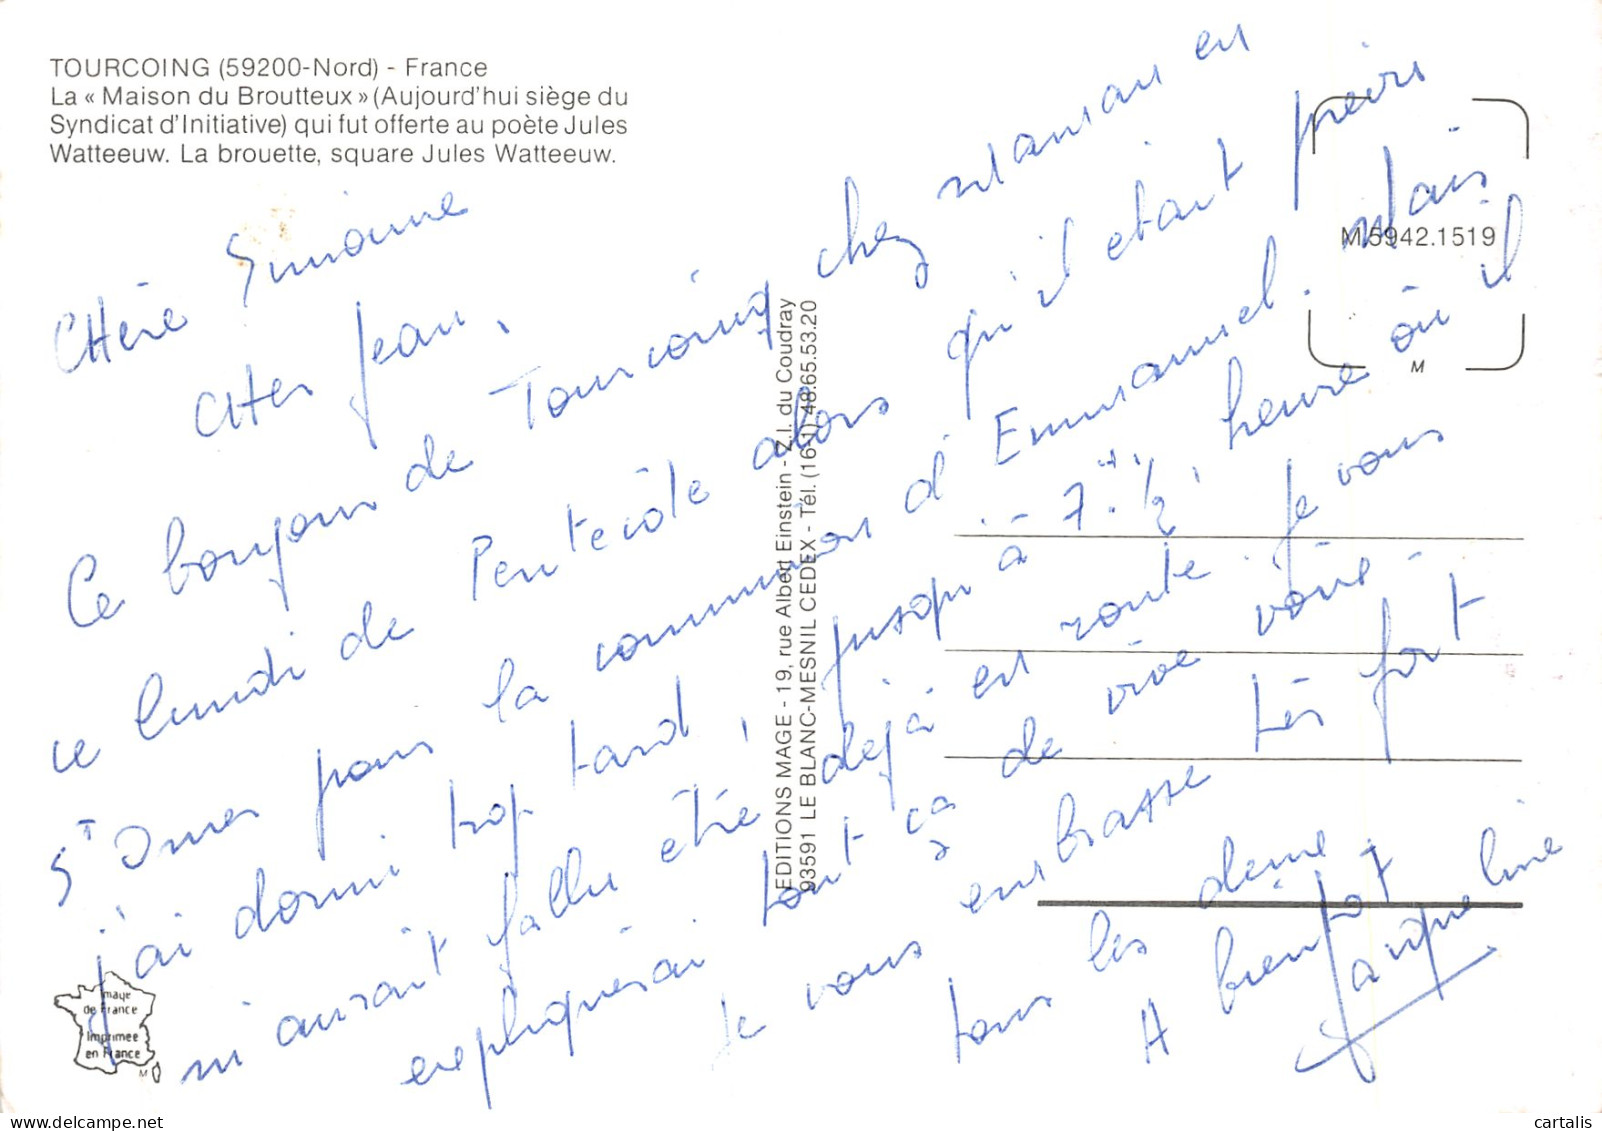 TOURCOING (59200-Nord) - France
La « Maison du Broutteux » (Aujourd'hui siège du
Syndicat d'Initiative) qui fut offerte au poète Jules
Watteeuw. La brouette, square Jules Watteeuw.
M.5942.1519
M
CHère Simonne
CHer Jean,
Ce bonjour de Tourcoing chez maman en
ce lundi de Pentecôte alors qu'il était prévu
St Omer pour la communion d'Emmanuel. Mais
j'ai dormi trop tard, jusqu'à 7.H 1/2, heure où il
m'aurait fallu être déjà en route. Je vous
expliquerai tout ça de vive voix -
Je vous embrasse très fort
tous les deux.
A bientôt
Jacqueline
EDITIONS MAGE - 19, rue Albert Einstein - Z.I. du Coudray
93591 LE BLANC-MESNIL CEDEX - Tél. (16-1) 48.65.53.20
mage
de France
Imprimée
en France
M
cartalis